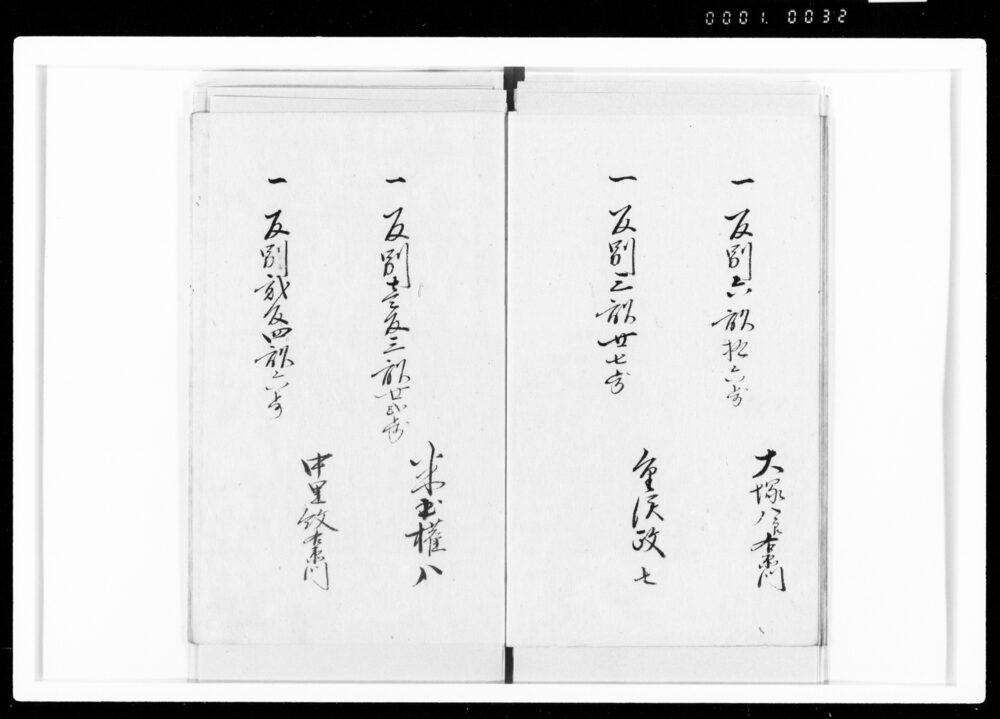 0001. 0032
一 反別六畝拾六歩
大塚八郎右衛門
一 反別三畝廿七歩
重須政七
一 反別壱反三畝廿弐歩
米玉權八
一 反別弐反四畝六歩
中里紋右衛門